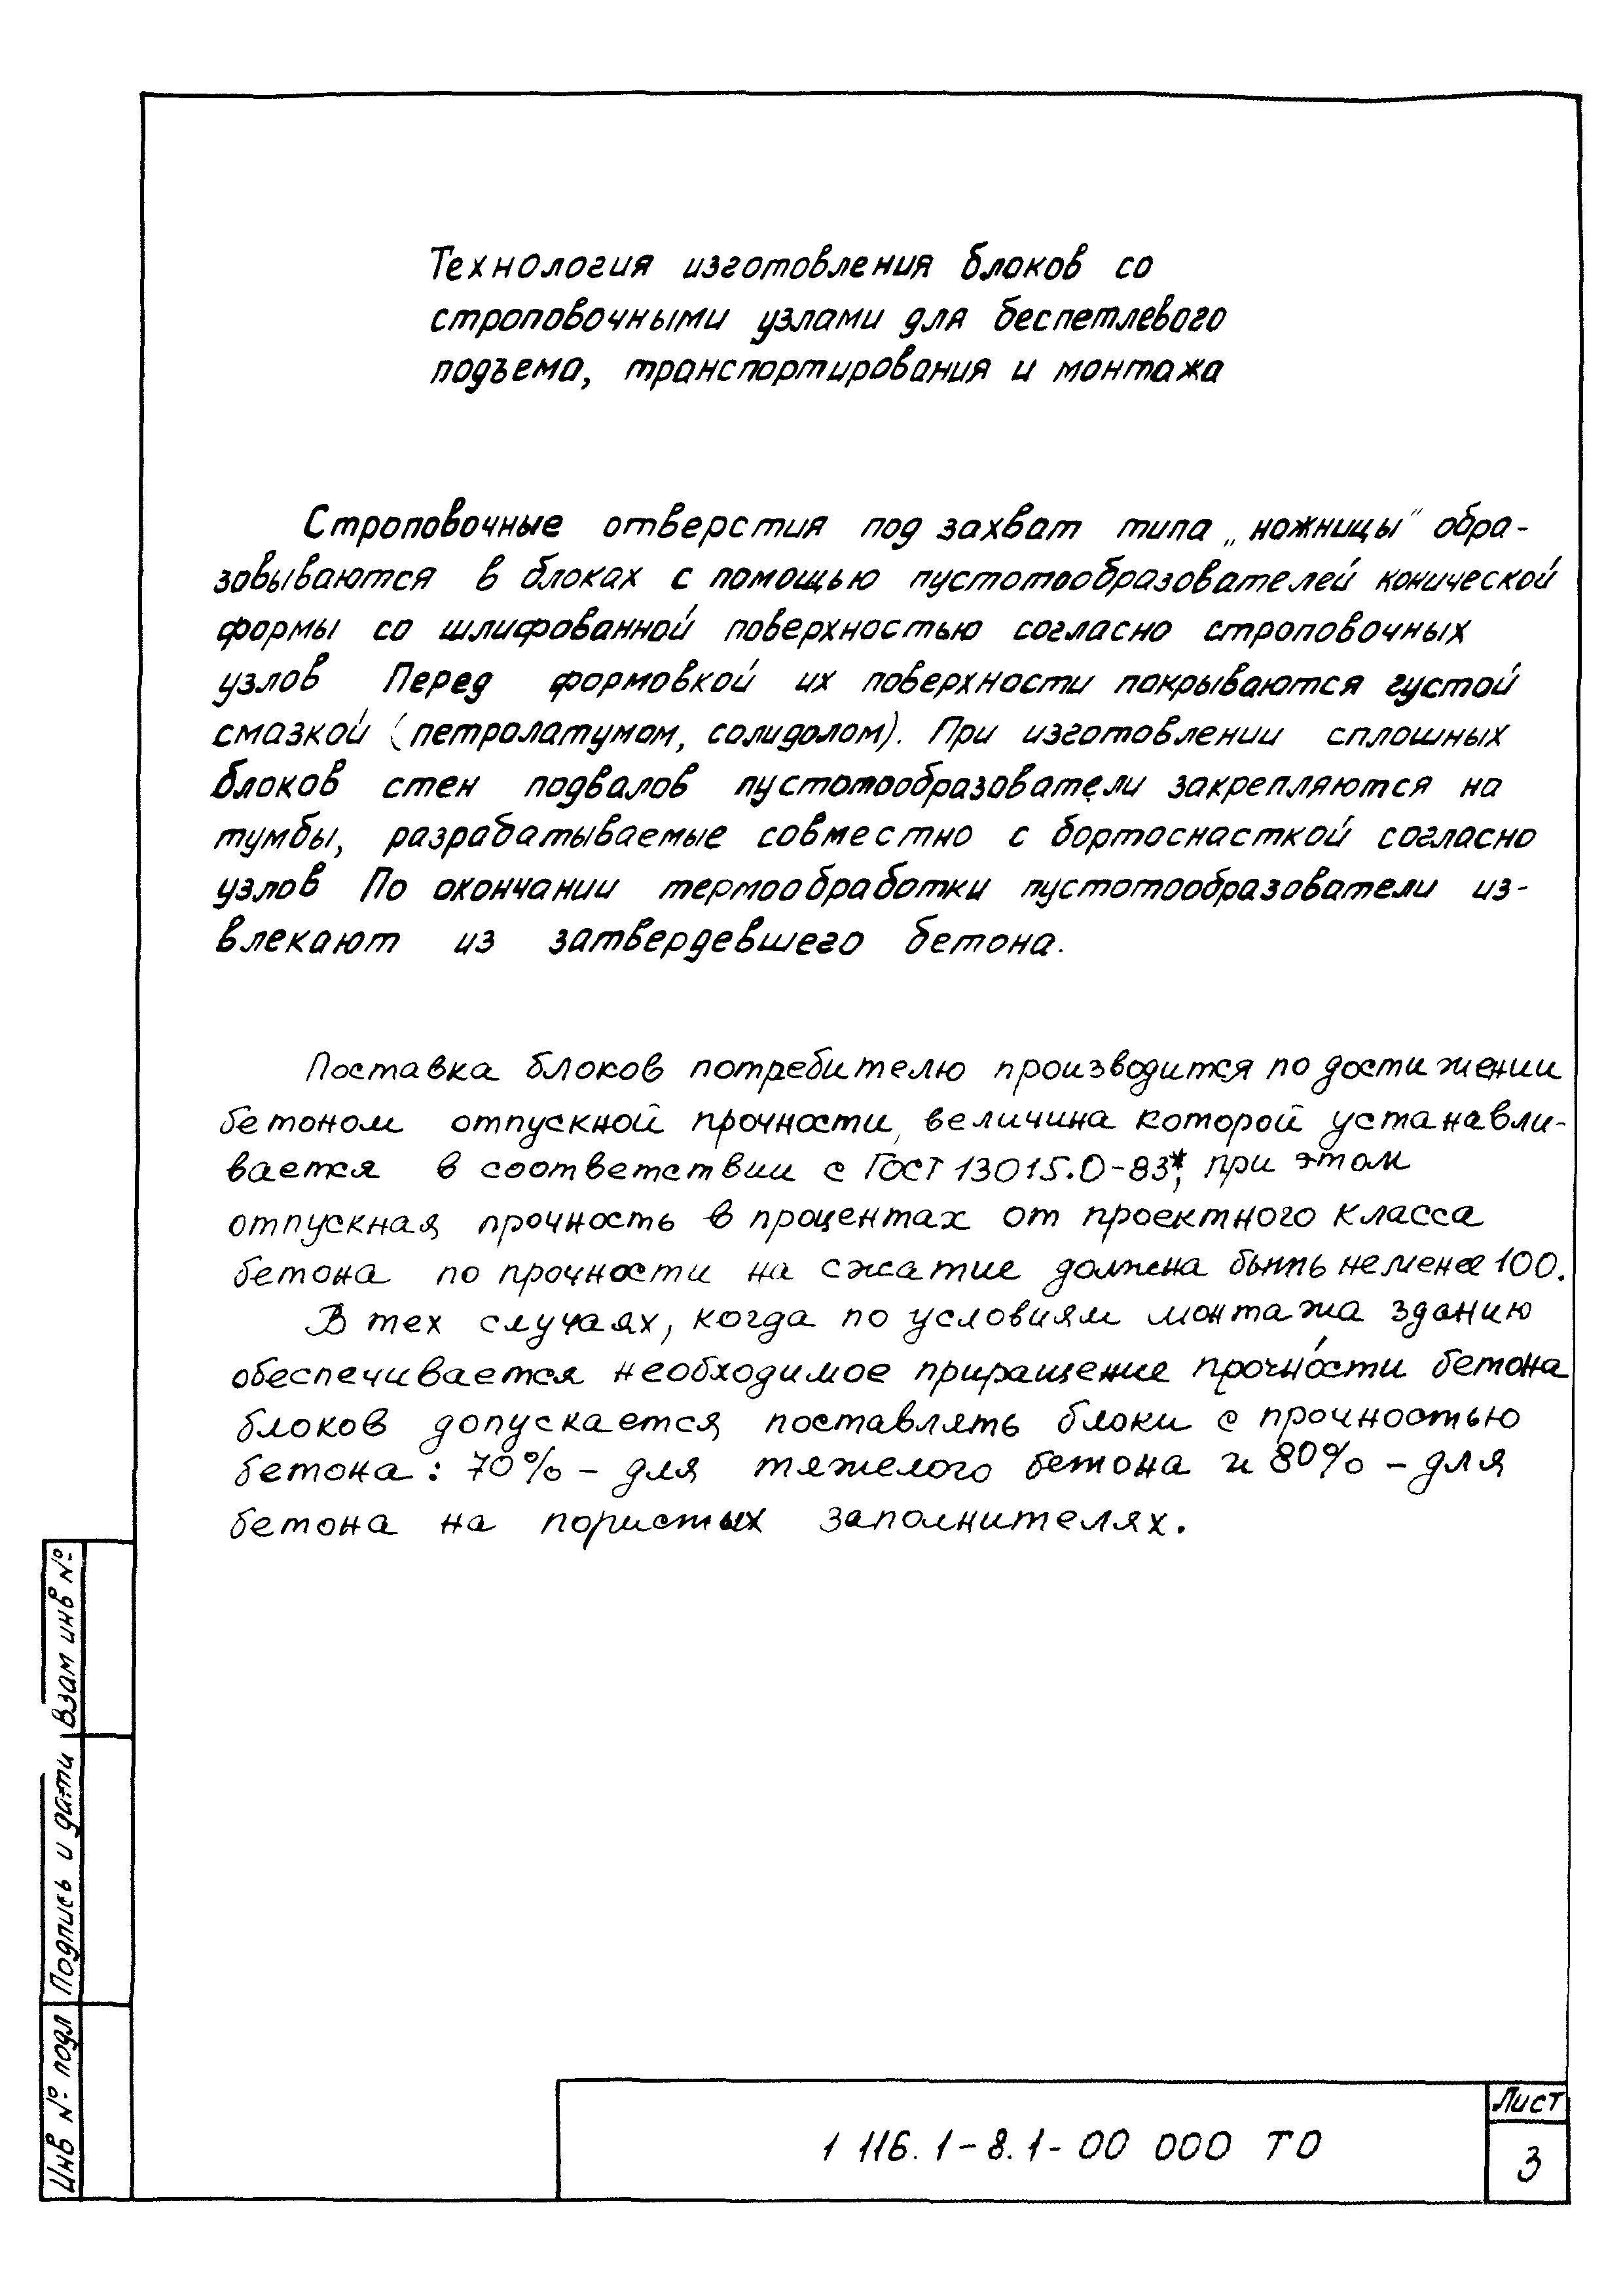 Технология изготовления блоков со
строповочными узлами для беспетлевого
подъема, транспортирования и монтажа
Строповочные отверстия под захват типа „ножницы" обра-
зовываются в блоках с помощью пустотообразователей конической
формы со шлифованной поверхностью согласно строповочных
узлов Перед формовкой их поверхности покрываются густой
смазкой (петролатумом, солидолом). При изготовлении сплошных
блоков стен подвалов пустотообразователи закрепляются на
тумбы, разрабатываемые совместно с бортоснасткой согласно
узлов По окончании термообработки пустотообразователи из-
влекают из затвердевшего бетона.
Поставка блоков потребителю производится по достижении
бетоном отпускной прочности, величина которой устанавли-
вается в соответствии с ГОСТ 13015.0-83*, при этом
отпускная прочность в процентах от проектного класса
бетона по прочности на сжатие должна быть не менее 100.
В тех случаях, когда по условиям монтажа зданию
обеспечивается необходимое приращение прочности бетона
блоков допускается поставлять блоки с прочностью
бетона: 70% - для тяжелого бетона и 80% - для
бетона на пористых заполнителях.
Взам инв №
Подпись и дата
Инв № подл
1 116.1-8.1-00 000 ТО
Лист
3